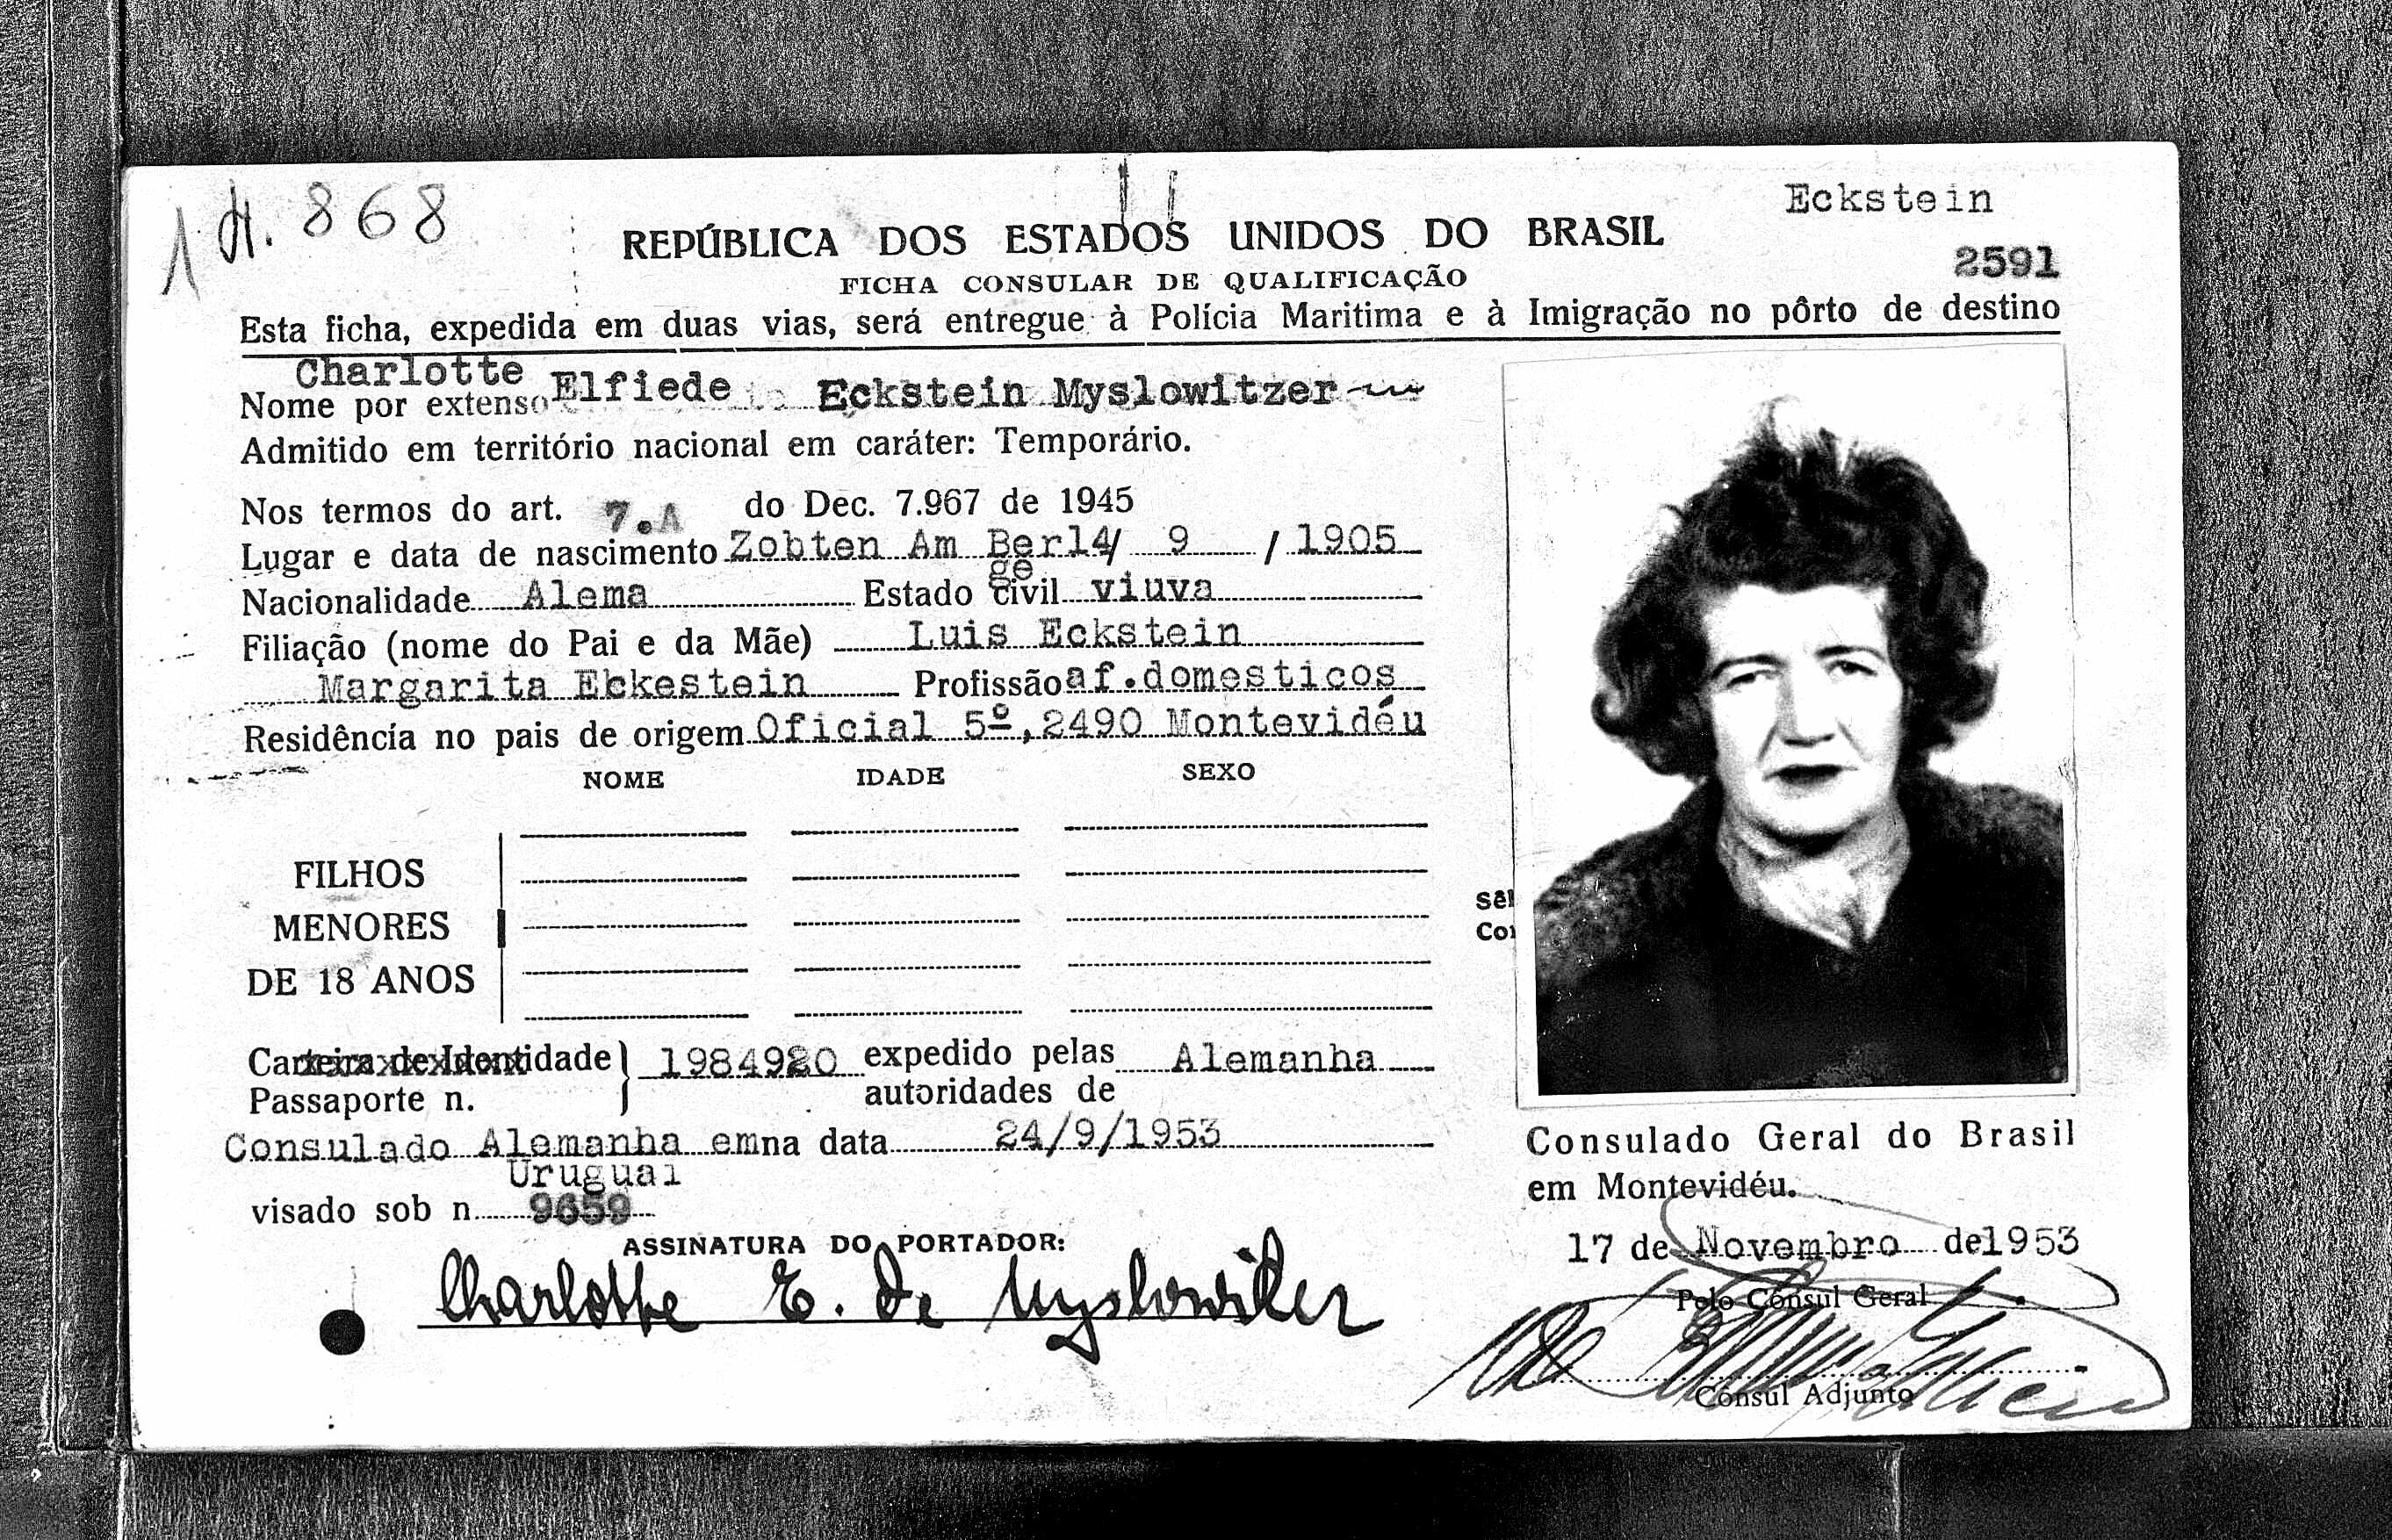 1 A. 868
Eckstein
REPÚBLICA DOS ESTADOS UNIDOS DO BRASIL
2591
FICHA CONSULAR DE QUALIFICAÇÃO
Esta ficha, expedida em duas vias, será entregue à Polícia Maritima e à Imigração no pôrto de destino
Charlotte
Nome por extenso Elfiede Eckstein Myslowitzer
Admitido em território nacional em caráter: Temporário.
Nos termos do art. 7.A do Dec. 7.967 de 1945
Lugar e data de nascimento Zobten Am Ber14/ 9 / 1905
ge
Nacionalidade Alema Estado civil viuva
Filiação (nome do Pai e da Mãe) Luis Eckstein
Margarita Eckestein Profissão af.domesticos
Residência no pais de origem Oficial 5º,2490 Montevidéu
NOME IDADE SEXO
FILHOS
MENORES
DE 18 ANOS
Sêl
Co
Carteira de Identidade 1984920 expedido pelas Alemanha
Passaporte n. autoridades de
Consulado Alemanha em na data 24/9/1953
Uruguai
visado sob n. 9659
ASSINATURA DO PORTADOR:
Charlotte E. de Myslowitzer
Consulado Geral do Brasil
em Montevidéu.
17 de Novembro de 1953
Pelo Consul Geral
Consul Adjunto